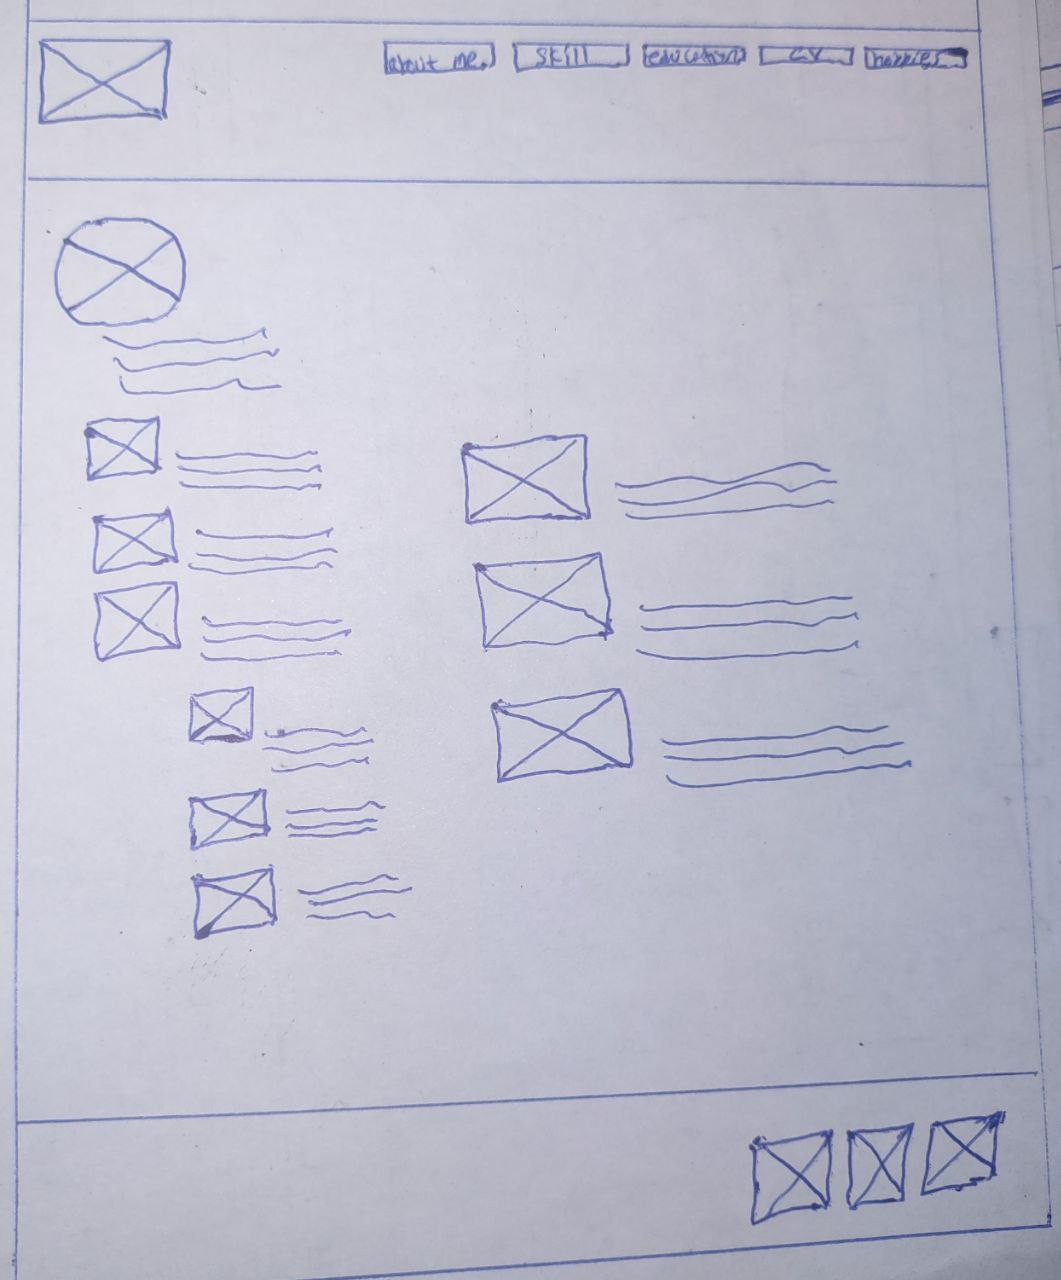 about me.
skill
education
CV
hobbies